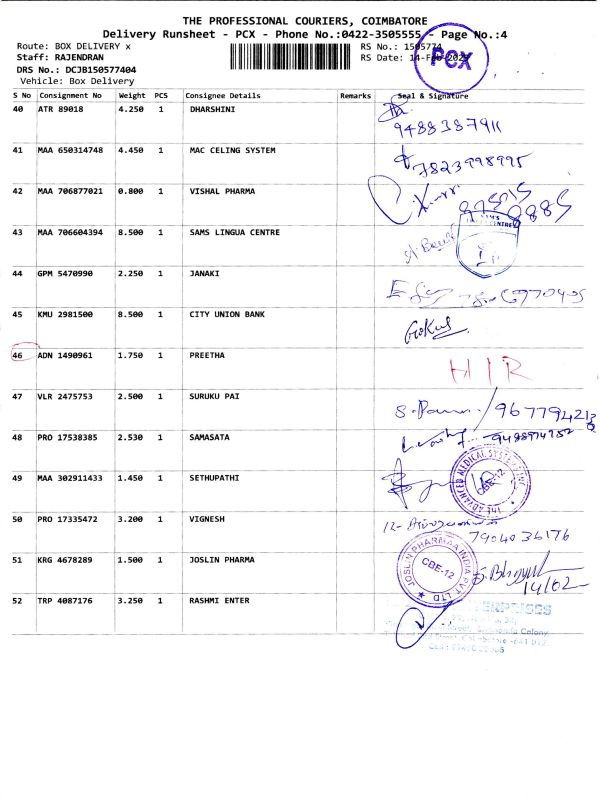 THE PROFESSIONAL COURIERS, COIMBATORE
Delivery Runsheet - PCX - Phone No.:0422-3505555 - Page No.:4
Route: BOX DELIVERY x
RS No.: 1505774
Staff: RAJENDRAN
RS Date: 14-Feb-2025
DRS No.: DCJB150577404
Vehicle: Box Delivery
PCX
S No Consignment No Weight PCS Consignee Details Remarks Seal & Signature
40 ATR 89018 4.250 1 DHARSHINI
9488387911
41 MAA 650314748 4.450 1 MAC CELING SYSTEM
7823998995
42 MAA 706877021 0.800 1 VISHAL PHARMA
43 MAA 706604394 8.500 1 SAMS LINGUA CENTRE
44 GPM 5470990 2.250 1 JANAKI
45 KMU 2981500 8.500 1 CITY UNION BANK
Gokul
46 ADN 1490961 1.750 1 PREETHA
HIR
47 VLR 2475753 2.500 1 SURUKU PAI
48 PRO 17538385 2.530 1 SAMASATA
49 MAA 302911433 1.450 1 SETHUPATHI
THE ADVANCED MEDICAL SYSTEMS
CBE-12
50 PRO 17335472 3.200 1 VIGNESH
7904036176
51 KRG 4678289 1.500 1 JOSLIN PHARMA
JOSLIN PHARMAA INDIA PVT LTD
CBE-12
14/02
52 TRP 4087176 3.250 1 RASHMI ENTER